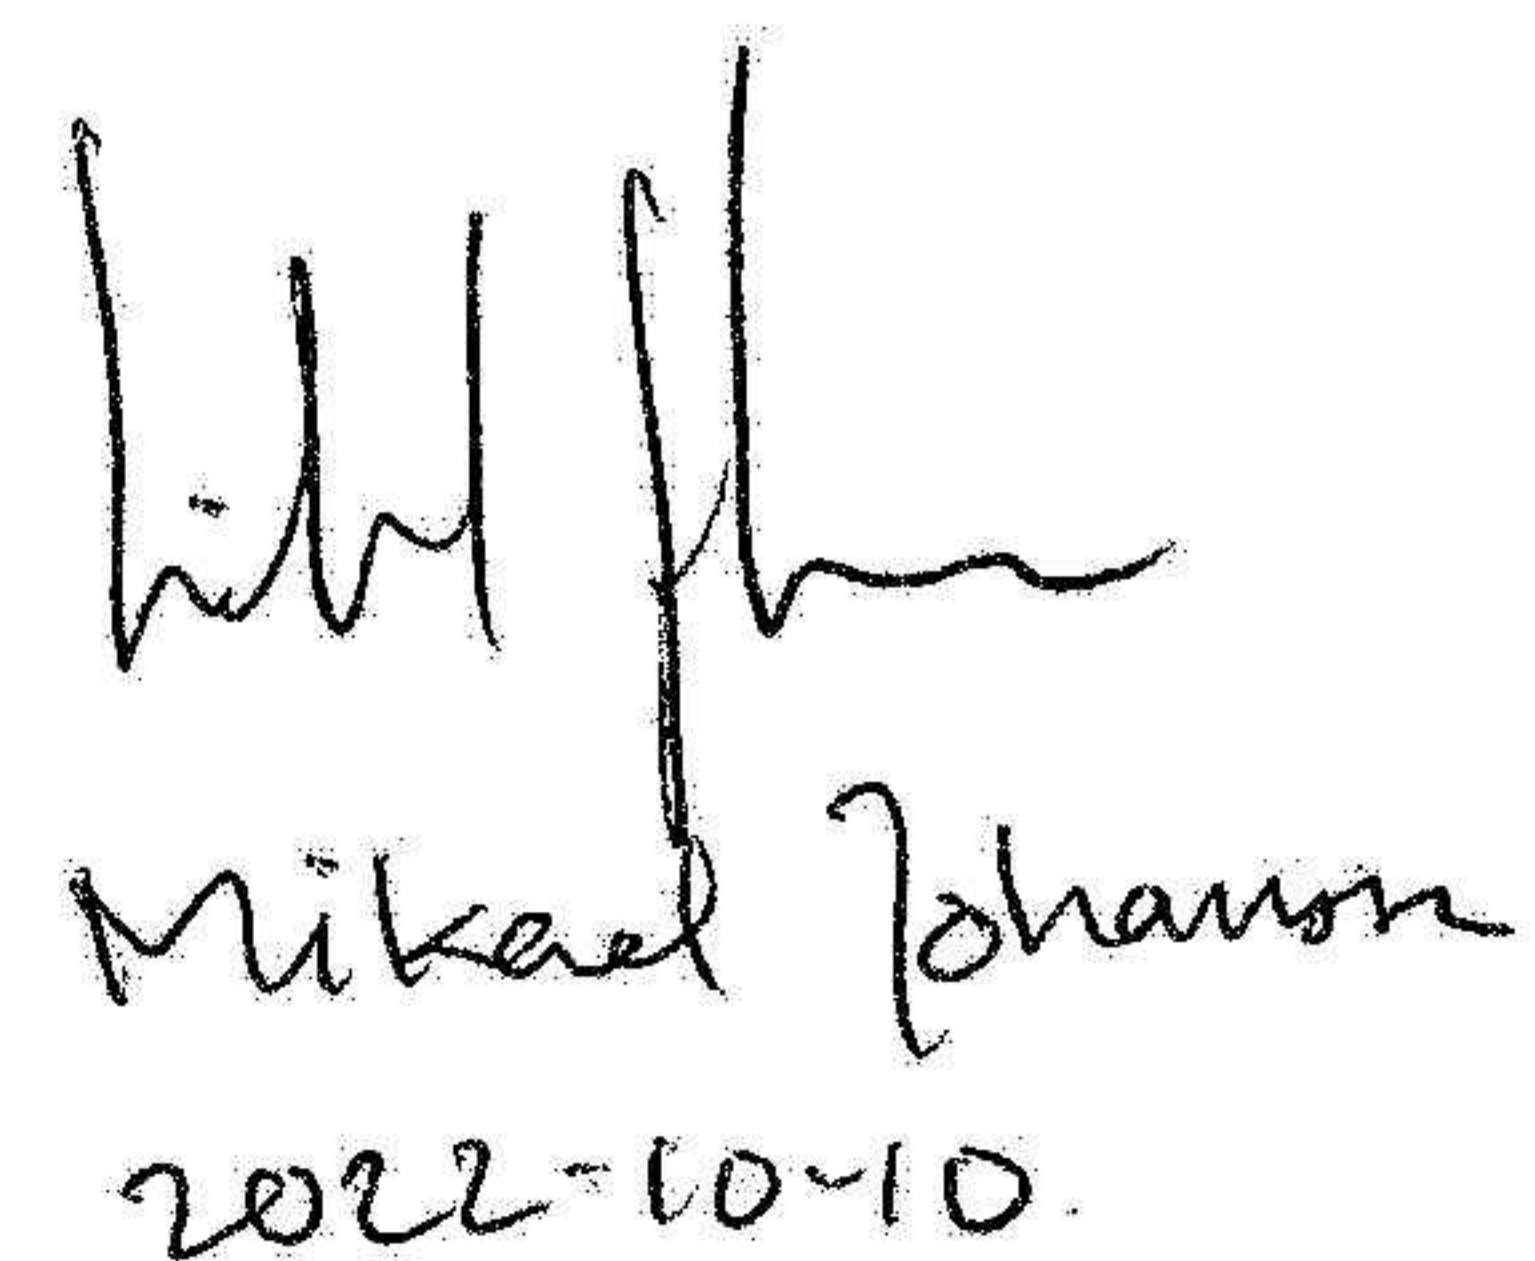 Mikael Johanson
2022-10-10.